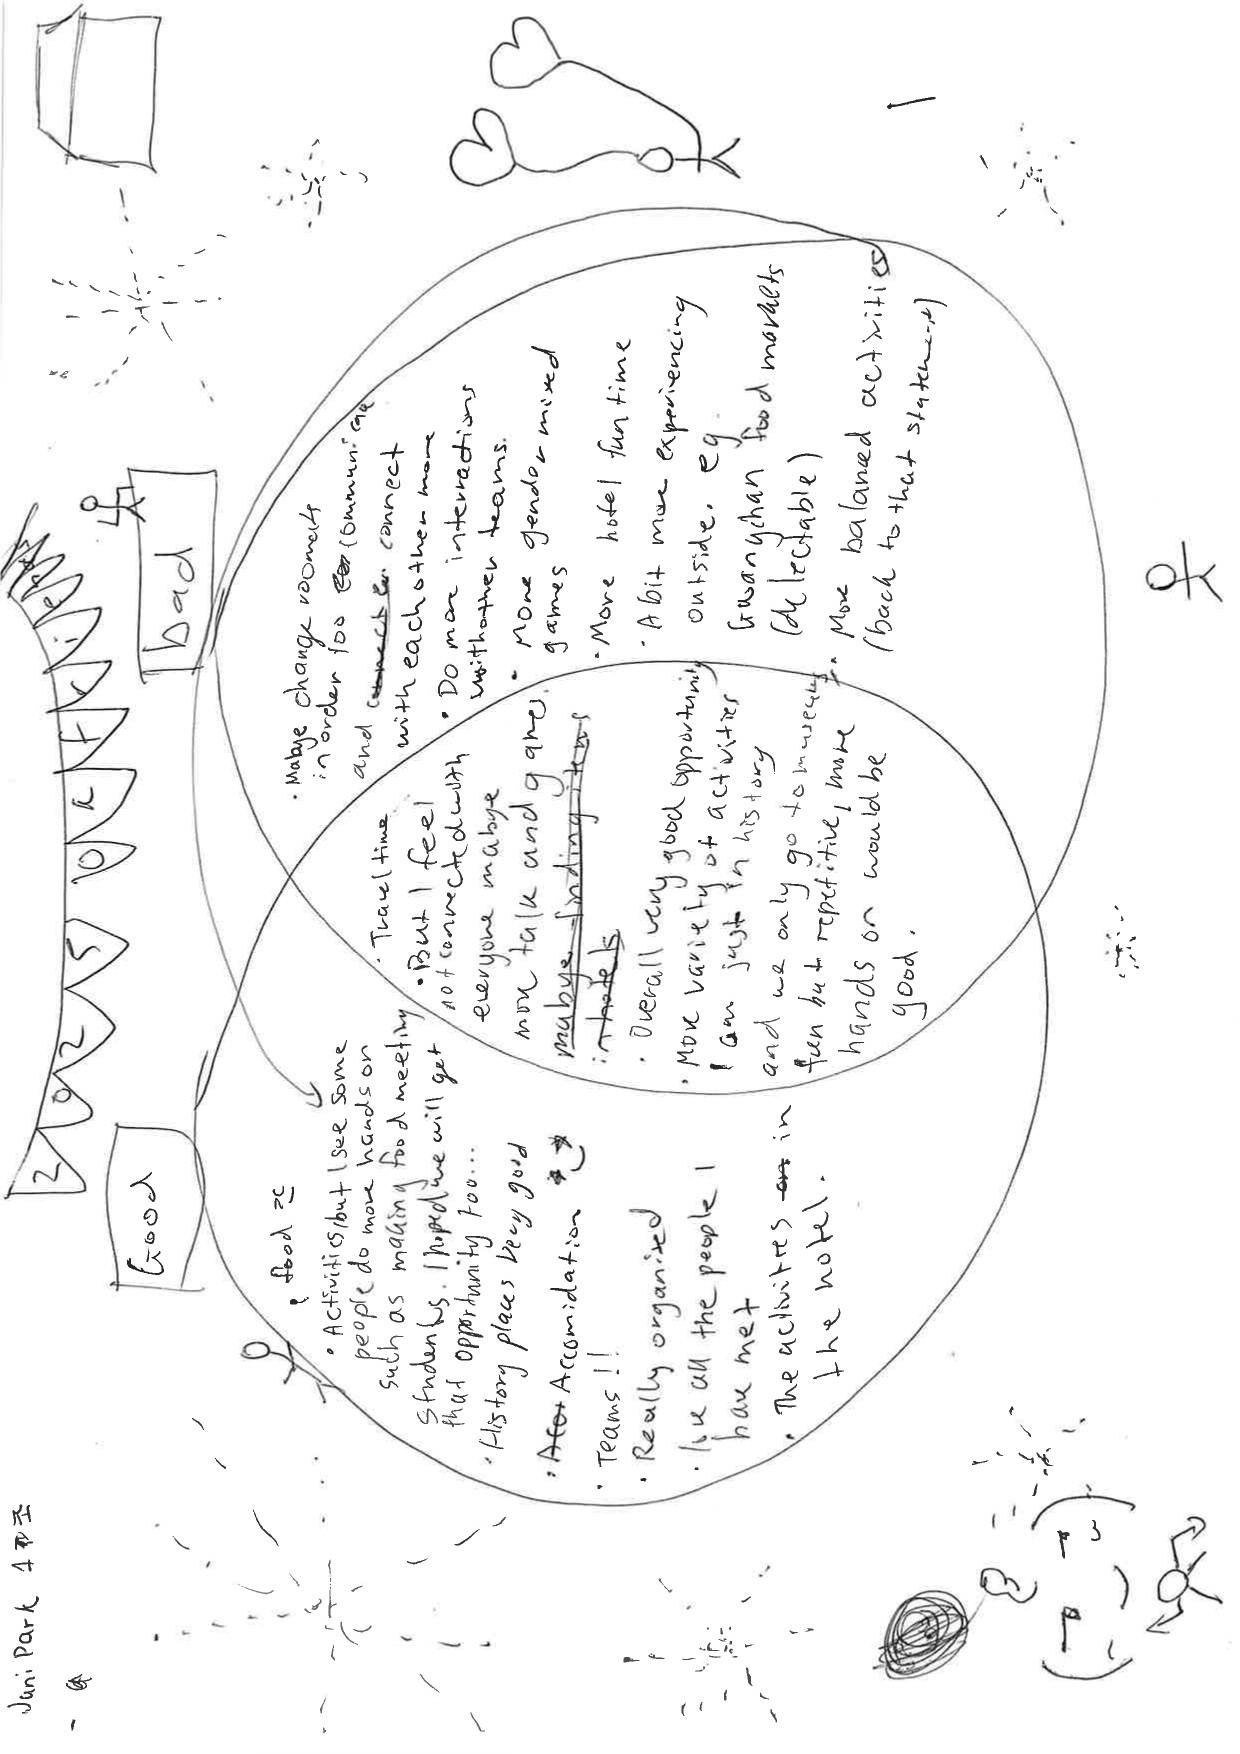 Juni Park 4조
2025 오사카
Good
bad
• food
• Activities/but I see some
people do more hands on
such as making food meeting
students. I hoped we will get
that opportunity too...
• History places very good
• Accomidation
• Teams!!
• Really organised
• love all the people I
have met
• The activities in
the hotel.
• Travel time
• But I feel
not connected with
everyone mabye
more talk and games
mabye finding items
in hotels
• Overall very good opportunity
• More variety of activities
I am just in history
and we only go to museums
fun but repetitive, more
hands on would be
good.
• Mabye change roomates
in order foo communicae
and connect
with eachother more
• Do more interractions
with other teams.
• More gender mixed
games
• More hotel fun time
• A bit more experiencing
outside. eg.
Gwangjihan food markets
(delectable)
• More balanced activities
(back to that statement)